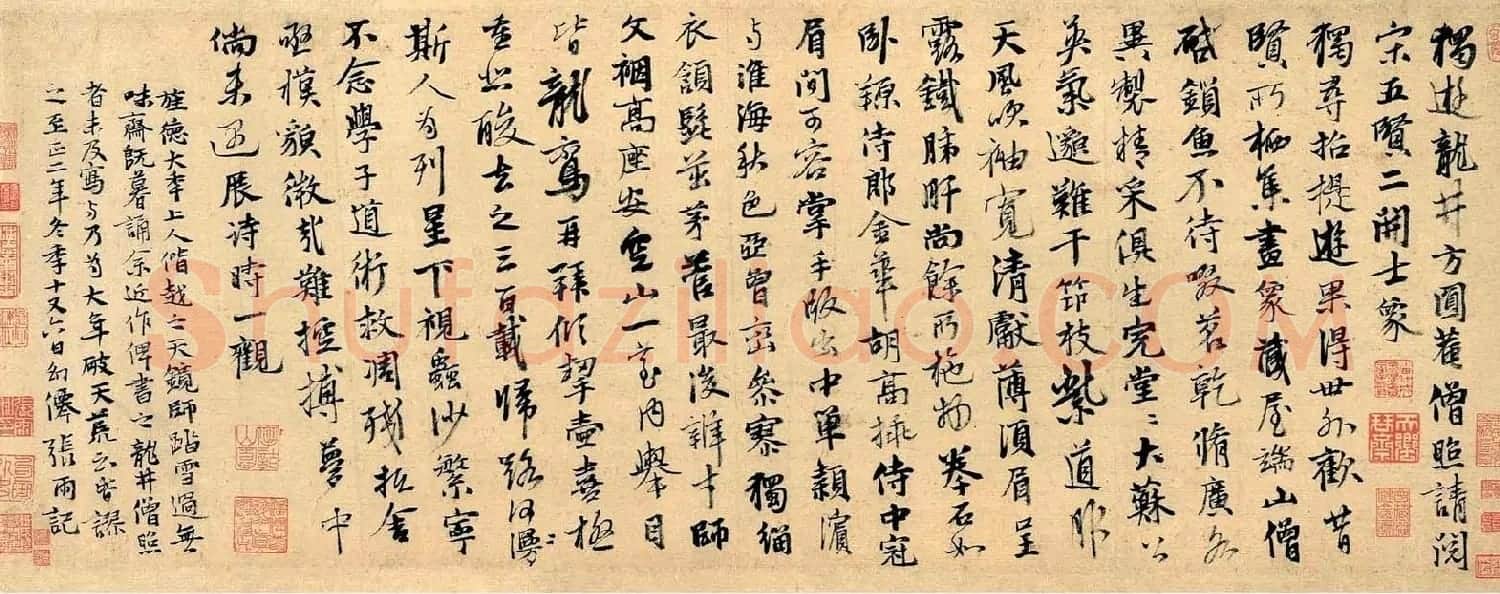 獨遊龍井方圓菴僧照請閱
宋五賢二開士象
獨尋招提遊果得世外歡昔
賢所栖集畫象藏屋端山僧
啟鎖魚不待啜茗乾脩廣各
異製精采俱生完堂〻大蘇公
英氣邈難干筇枝紫道服
天風吹袖寬清獻薄須眉呈
露鐵肺肝尚餘所施物拳石如
臥羱侍郎金華胡高排侍中冠
眉間可容掌手版出中單潁濱
与淮海秋色亞曾巒參寥獨緇
衣領髭茁茅菅最後辯才師
文裀高座安空山一室內舉目
皆龍鸞再拜傾挈壺喜極
重悲酸去之三百載歸路何漫〻
斯人為列星下視蟲沙繁寧
不念學子道術救凋殘抵舍
亟模貌微哉難控摶夢中
倘未還展詩時一觀
旌德大本上人偕越之天鏡師踏雪過無
味齋既暮誦余近作俾書之龍井僧照
者未及寫与乃為大年破天荒云皆
之至正二年冬季十又六日句僊張雨記
Shufaziliao.COM